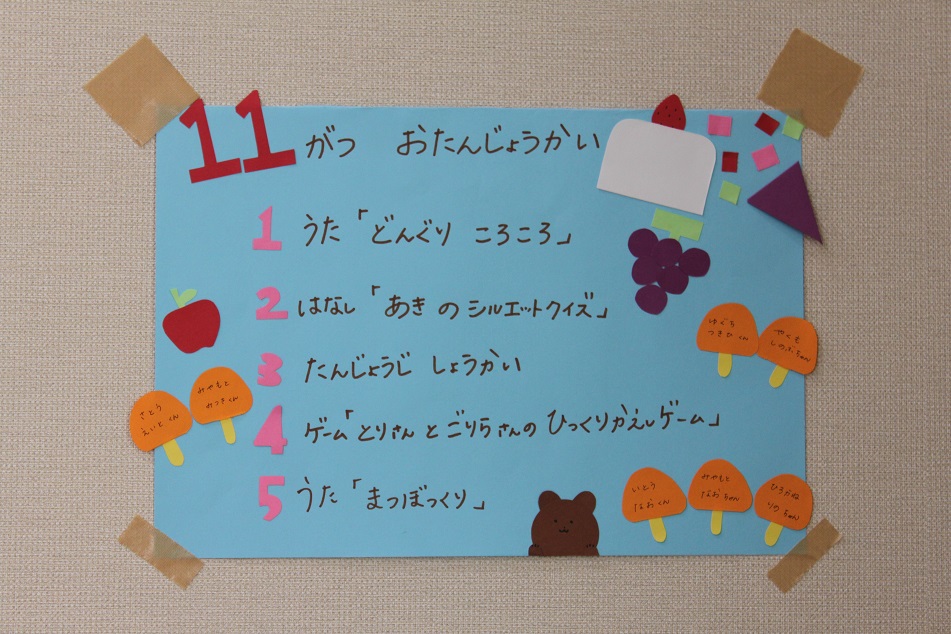 11がつ おたんじょうかい
1 うた「どんぐり ころころ」
2 はなし「あき の シルエットクイズ」
3 たんじょうじ しょうかい
4 ゲーム「とりさん と ごりらさんの ひっくりかえしゲーム」
5 うた「まつぼっくり」
さとう
えいと くん
みやもと
みつき くん
ゆぐち
つきひ くん
やくも
しのぶちゃん
いとう
なお くん
みやもと
なお ちゃん
ひろかね
りの ちゃん